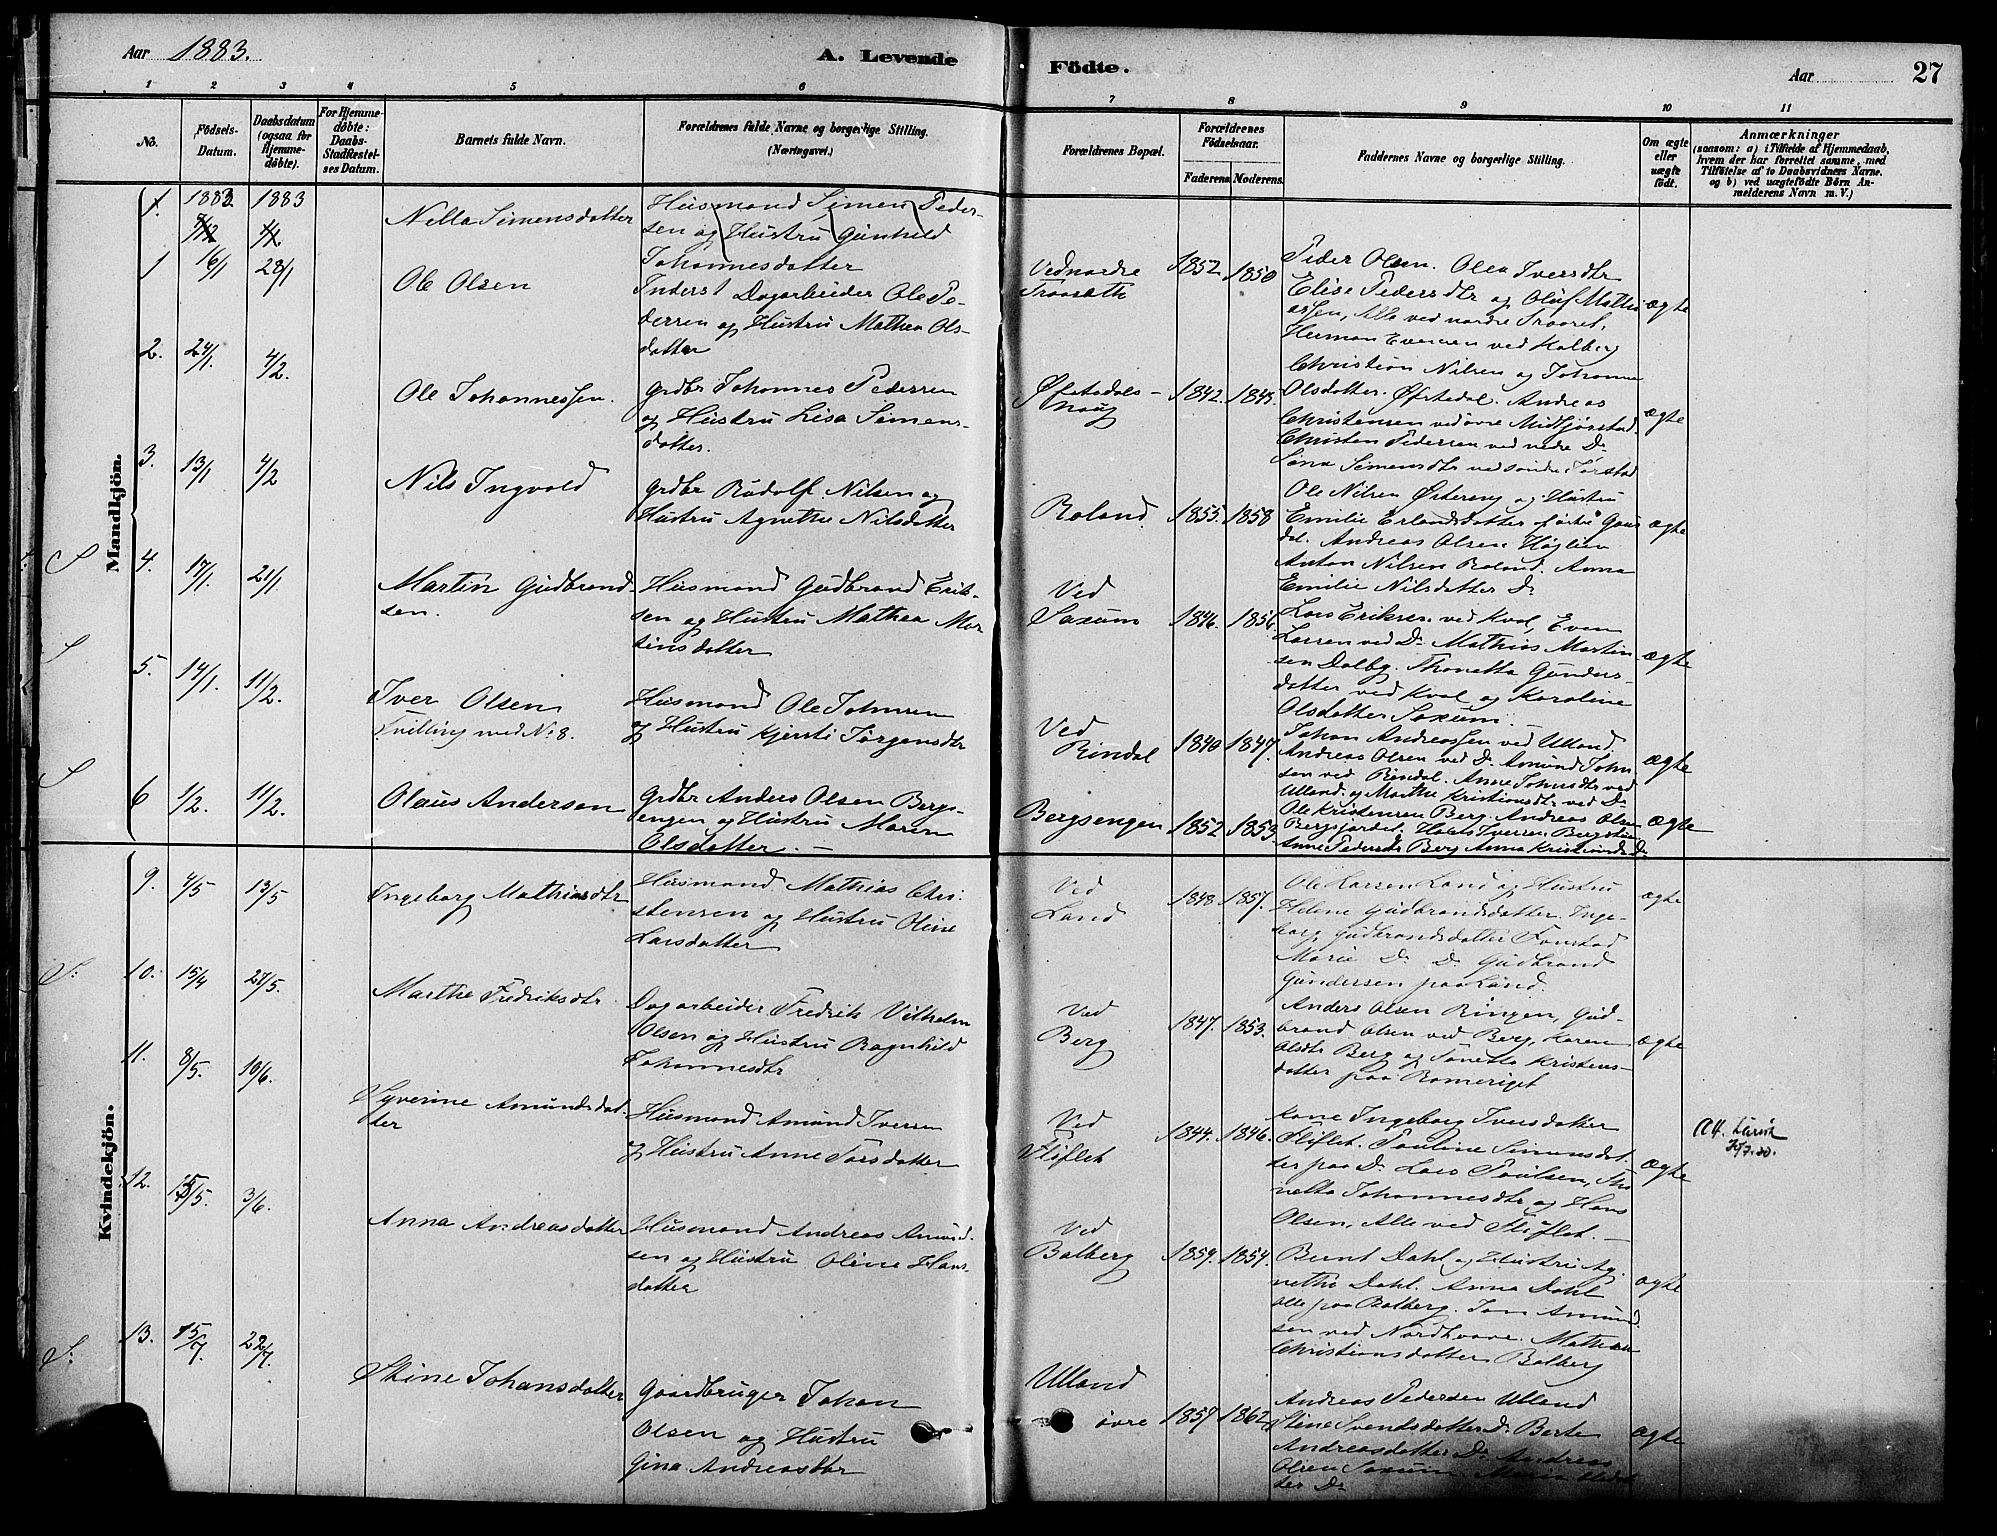 Aar 1883.
A. Levende Födte.
Aar 27
1 2 3 4 5 6 7 8 9 10 11
No.
Födsels-Datum.
Daabsdatum (ogsaa for Hjemme-döbte).
For Hjemme-döbte: Daabs-Stadfæstel-ses Datum.
Barnets fulde Navn.
Forældrenes fulde Navne og borgerlige Stilling.
(Næringsvei.)
Forældrenes Bopæl.
Forældrenes Födselsaar.
Faderens. Moderens.
Faddernes Navne og borgerlige Stilling.
Om ægte eller uægte födt.
Anmærkninger
(saasom: a) i Tilfælde af Hjemmedaab,
hvem der har forrettet samme, med
Tilföielse af to Daabsvidners Navne.
og b) ved uægtefödte Börn An-
melderens Navn m. V.)
Mandkjön.
1. 1883 1883
Nella Simensdatter
Husmand Simen Peder-
sen og Hustru Gunhild
Johannesdatter
1 16/1 28/1
Ole Olsen
Inderst Dagarbeider Ole Pe-
dersen og Hustru Mathea Ols-
datter
Ved nordre
1852 1850
Peder Olsen. Olea Iversdtr
Elise Pedersdtr og Oluf Mathi-
assen, Alle ved nordre
ved Kolberg
ægte
2. 24/1 4/2.
Ole Johannessen.
Grdbr Johannes Pedersen
og Hustru Lisa Simens-
datter.
1842. 1845.
Christian Nilsen og Johanne
Olsdatter. Øfstedal. Andreas
Christensen ved øvre Midtjørstad.
Christen Pedersen ved nedre Do
Simensdtr ved søndre Jørstad
ægte
3. 13/1 4/2
Nils Ingvald
Grdbr Rudolf Nilsen og
Hustru Agnethe Nilsdatter
Roland 1855. 1858
Ole Nilsen Østereng og Hustru
Emilie Erlandsdatter
Andreas Olsen
Anton Nilsen Roland. Anna
Emilie Nilsdatter Do
ægte
S 4. 17/1. 21/1
Martin Gudbrand-
sen.
Husmand Gudbrand Erik-
sen og Hustru Mathea Mar-
tinsdatter
Ved
Saxum 1846. 1856.
Lars Eriksen ved Kval, Even
Larsen ved Do Mathias Martin-
sen Dalby. Thonetta Gunders-
datter ved Kval og Karoline
Olsdatter Saxum.
ægte
S 5. 14/1. 11/2.
Iver Olsen
Tvilling med No 8.
Husmand Ole Johnsen
og Hustru Kjersti Jørgensdtr
Ved
Rindal 1840 1847.
Johan Andreassen ved Ulland.
Andreas Olsen ved Do Amund John-
sen ved Rindal. Anne Johnsdtr ved
Ulland. og Marthe Kristiansdtr. ved Do
ægte
S 6 1/2. 11/2.
Olaus Andersen
Grdbr Anders Olsen Bergs-
engen og Hustru Maren
Olsdatter. —
Bergsengen 1852 1853
Ole Kristensen Berg. Andreas Olsen
Bergsjordet. Iversen
Anne Pedersdtr Berg Anna Kristiansdtr Do
ægte
Kvindekjön.
9. 4/5 13/5
Ingeborg Mathiasdtr
Husmand Mathias Chri-
stensen og Hustru Oline
Larsdatter
Ved
Land 1848 1857.
Ole Larsen Land og Hustru
Helene Gudbrandsdatter. Inge-
borg Gudbrandsdatter
Marie Do Do Gudbrand
Gundersen paa Land.
ægte
S: 10. 15/4 27/5.
Marthe Fredriksdtr
Dagarbeider Fredrik Vilhelm
Olsen og Hustru Ragnhild
Johannesdtr
Ved
Berg 1847. 1853.
Anders Olsen Ringen, Gud-
brand Olsen ved Berg, Karen
Olsdtr Berg og Tonetta Kristens-
datter paa Romeriget
ægte
11. 8/5. 10/6.
Syverine Amundsdat-
ter
Husmand Amund Iversen
og Hustru Anne Larsdatter
Ved
1844. 1846.
Kone Ingeborg Iversdatter
Pauline Simensdat-
ter paa Do Lars Paulsen,
netta Johannesdtr og Hans
Olsen, Alle ved
ægte
12. 15/5. 3/6.
Anna Andreasdatter
Husmand Andreas Amund-
sen og Hustru Oline Hans-
datter
Ved
Balberg 1859. 1854.
Bernt Dahl og Hustru Ag-
nethe Dahl. Anna Dahl
alle paa Balberg. Amund-
sen ved Nordhove. Mathea
Christiansdatter Balberg
ægte
S: 13. 15/7. 22/7.
Stine Johansdatter
Gaardbruger Johan
Olsen og Hustru
Gina Andreasdtr
Ulland
øvre 1857 1862
Andreas Pedersen Ulland
Stine Svendsdatter Do Berte
Andreasdatter Do Andreas
Olsen Saxum.
ter Do
ægte